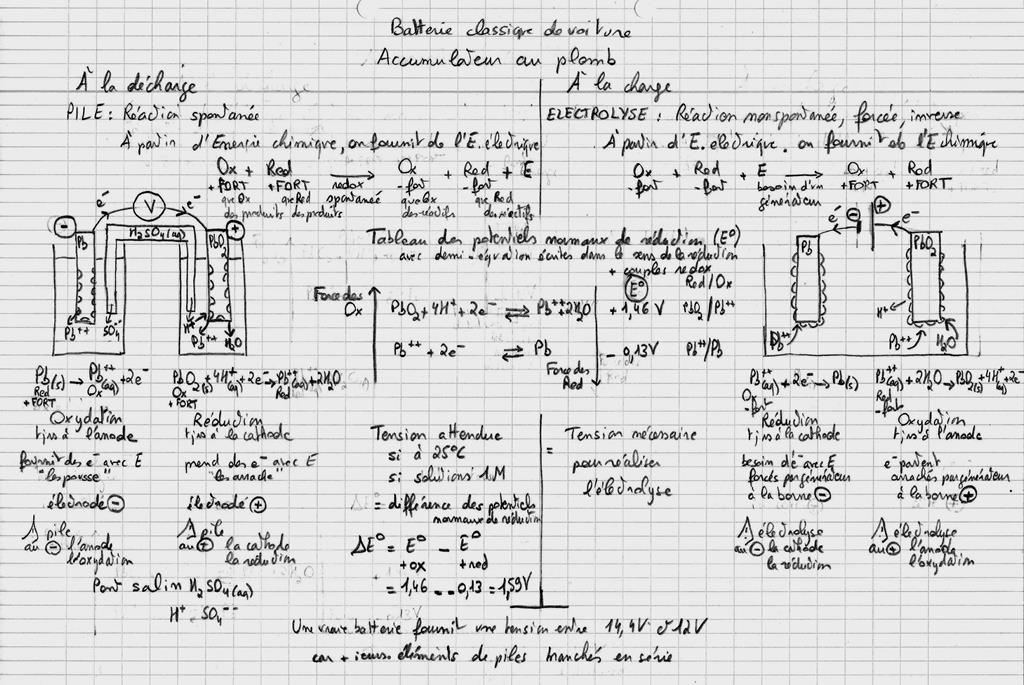 Batterie classique de voiture
Accumulateur au plomb
À la décharge
PILE : Réaction spontanée
À partir d'Energie chimique, on fournit de l'E. électrique
Ox + Red → Ox + Red + E
+FORT +FORT redox -fort -fort
que Ox que Red spontanée que Ox que Red
des produits des produits des réactifs des réactifs
À la charge
ELECTROLYSE : Réaction non spontanée, forcée, inverse
À partir d'E. électrique. on fournit de l'E chimique
Ox + Red + E → Ox + Red
-fort -fort besoin d'un +FORT +FORT
générateur
e⁻ V e⁻
- Pb H₂SO₄(aq) PbO₂ +
Pb⁺⁺ SO₄⁻⁻ H⁺ Pb⁺⁺ H₂O
Tableau des potentiels normaux de réduction (E°)
avec demi-équation écrites dans le sens de la réduction
+ couples redox
Force des Ox
E° Red/Ox
PbO₂ + 4H⁺ + 2e⁻ ⇌ Pb⁺⁺ + 2H₂O + 1,46 V PbO₂/Pb⁺⁺
Pb⁺⁺ + 2e⁻ ⇌ Pb - 0,13V Pb⁺⁺/Pb
Force des Red
e⁻ - + e⁻
Pb PbO₂
H⁺
Pb⁺⁺ Pb⁺⁺ H₂O
Pb(s) → Pb⁺⁺(aq) + 2e⁻
Red Ox
+FORT
Oxydation
tjrs à l'anode
fournit des e⁻ avec E
"les pousse"
électrode -
⚠ pile
au - l'anode
l'oxydation
PbO₂(s) + 4H⁺(aq) + 2e⁻ → Pb⁺⁺(aq) + 2H₂O
Ox Red
+FORT
Réduction
tjrs à la cathode
prend des e⁻ avec E
"les arrache"
électrode +
⚠ pile
au + la cathode
la réduction
Pont salin H₂SO₄(aq)
H⁺ SO₄⁻⁻
Tension attendue
si à 25°C
si solutions 1M
= différence des potentiels
normaux de réduction
ΔE° = E° - E°
+ox +red
= 1,46 - - 0,13 = 1,59V
= Tension nécessaire
pour réaliser
l'électrolyse
Pb⁺⁺(aq) + 2e⁻ → Pb(s)
Ox
-fort
Réduction
tjrs à la cathode
besoin d'e⁻ avec E
forcés par générateur
à la borne -
⚠ électrolyse
au - la cathode
la réduction
Pb⁺⁺(aq) + 2H₂O → PbO₂(s) + 4H⁺(aq) + 2e⁻
Red
-fort
Oxydation
tjrs à l'anode
e⁻ partent
arrachés par générateur
à la borne +
⚠ électrolyse
au + l'anode
l'oxydation
Une vraie batterie fournit une tension entre 14,4V et 12V
car + ieurs éléments de piles branchés en série